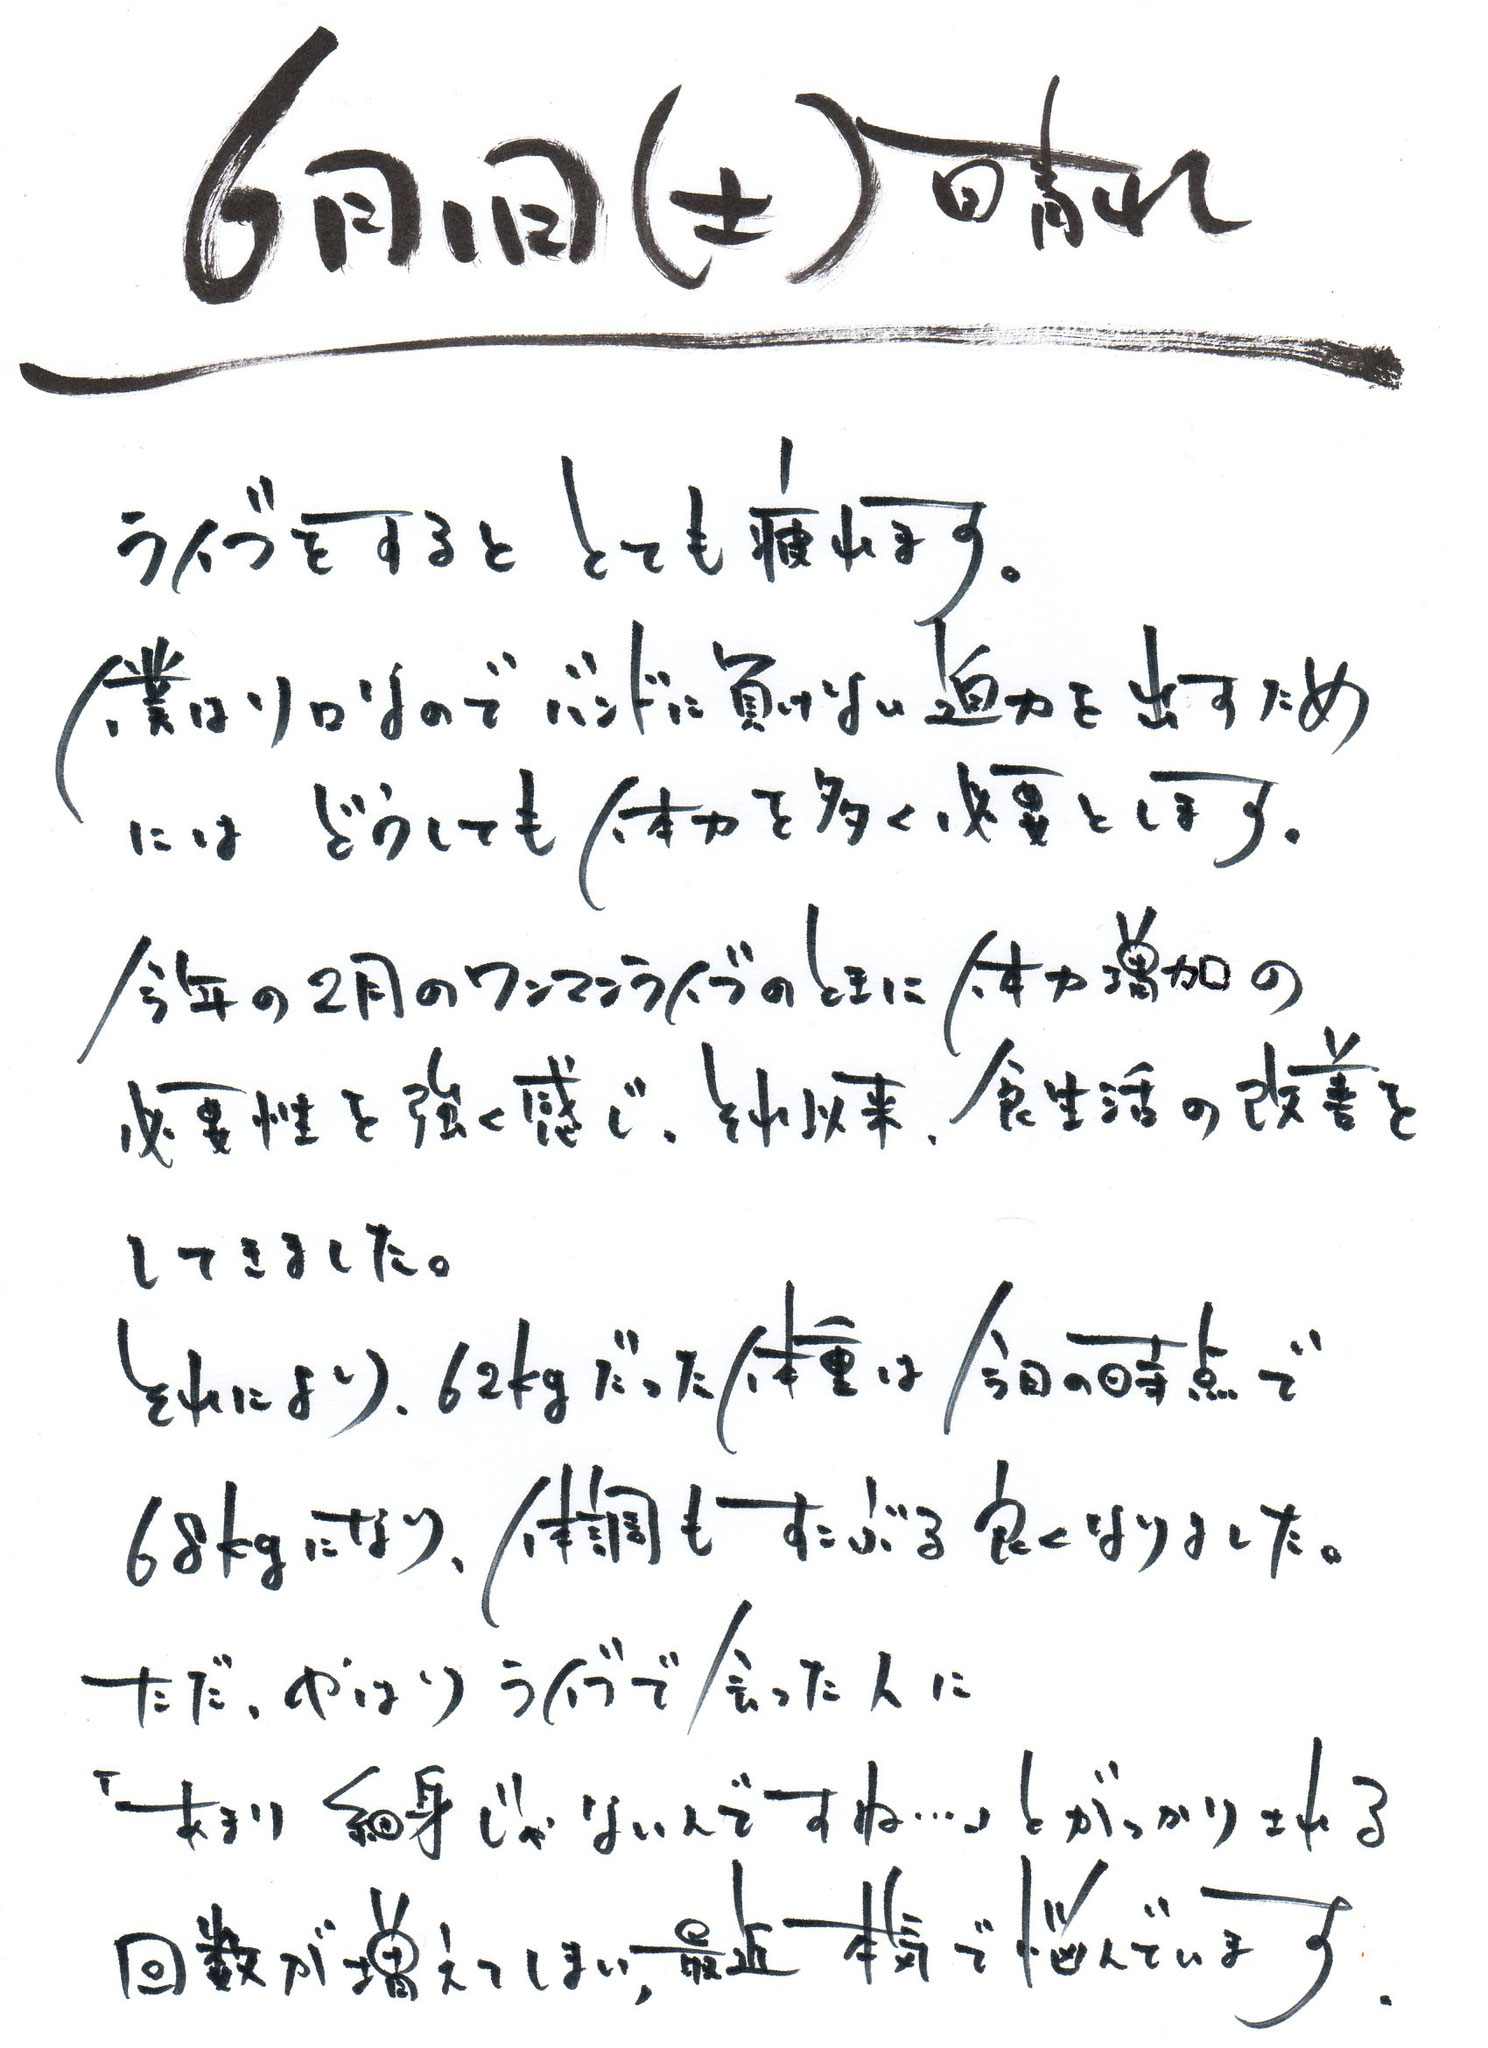 6月1日(土) 晴れ
ライブをすると とても疲れます。
僕はソロなので バンドに負けない迫力を出すため
には どうしても体力を多く必要とします。
今年の2月のワンマンライブのときに体力増加の
必要性を強く感じ、それ以来、食生活の改善を
してきました。
それにより、62kgだった体重は今日の時点で
68kgになり、体調もすこぶる良くなりました。
ただ、やはりライブで会った人に
「あまり細身じゃないんですね…」とがっかりされる
回数が増えてしまい、最近本気で悩んでいます.